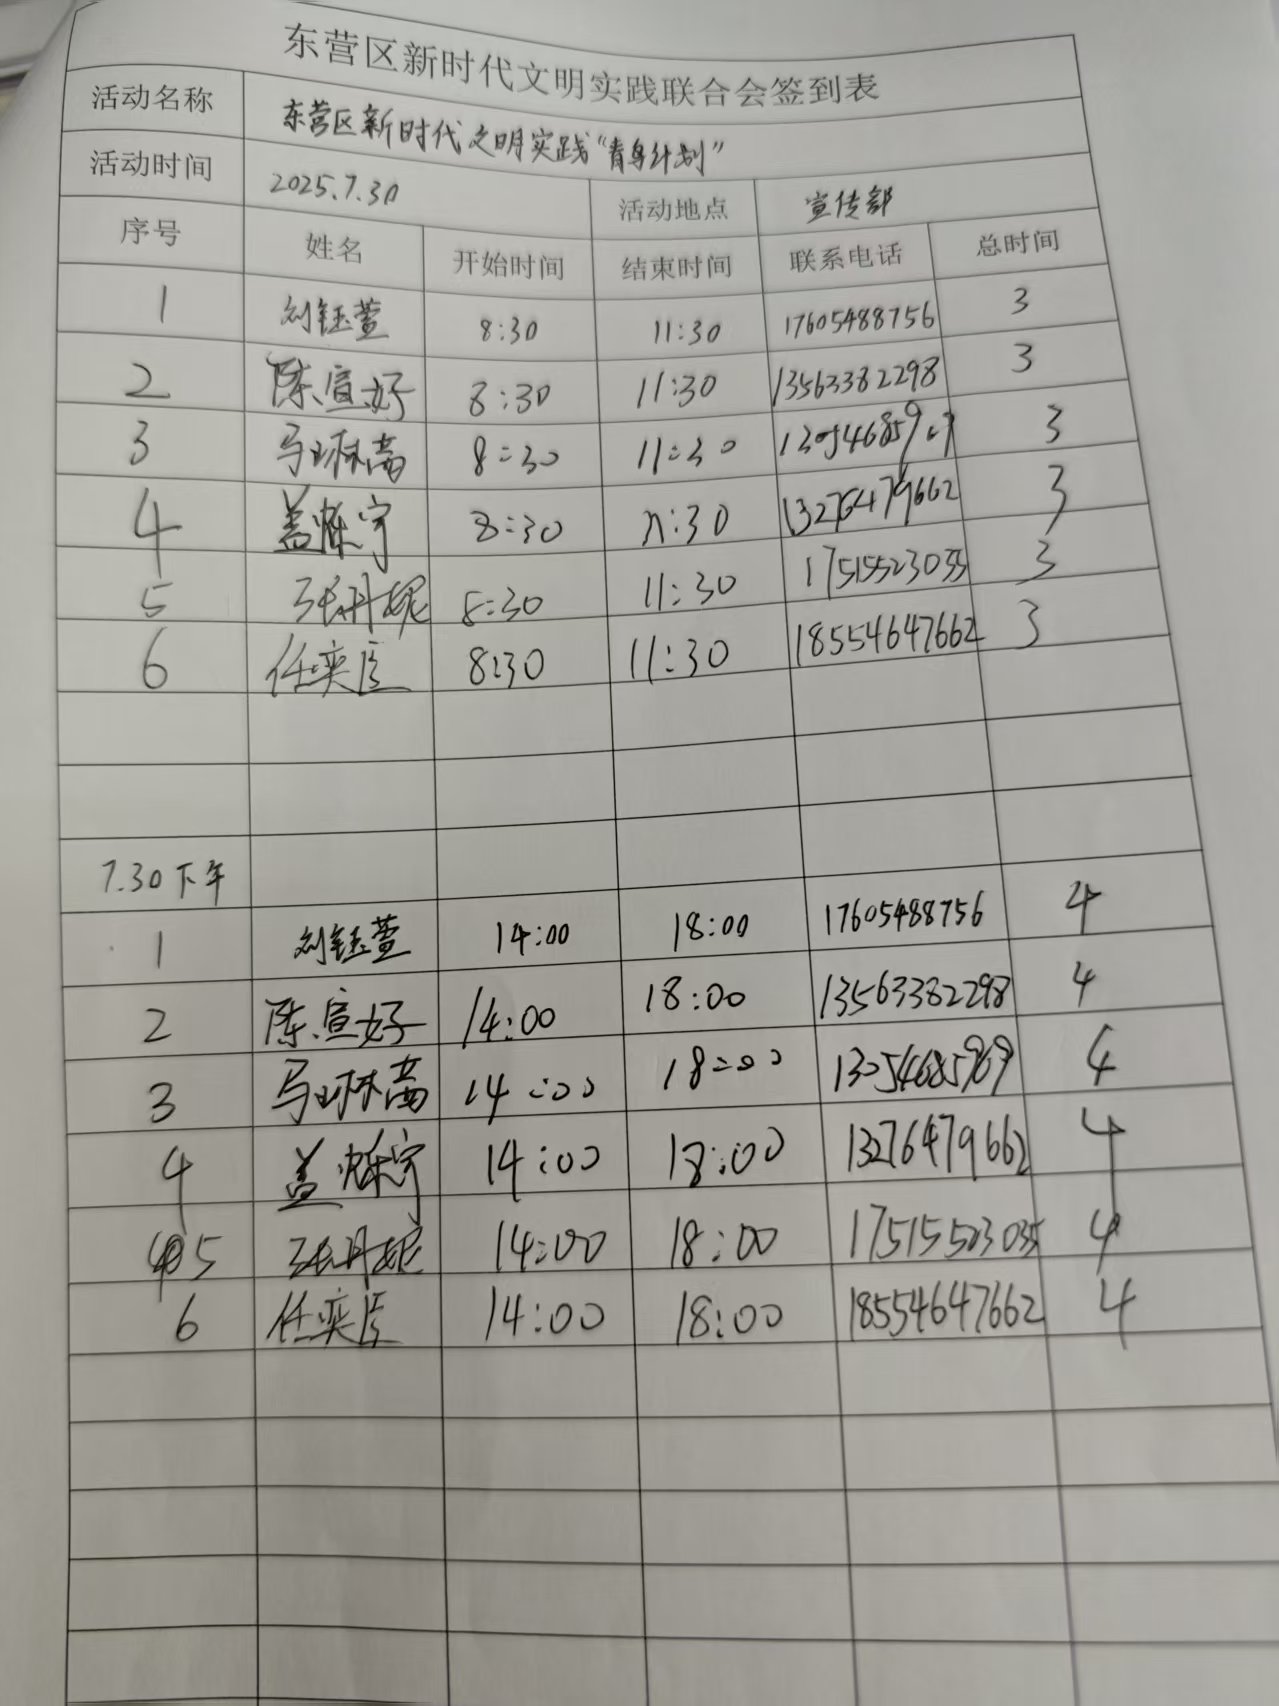 东营区新时代文明实践联合会签到表
活动名称 东营区新时代文明实践“青鸟计划”
活动时间 2025.7.30 活动地点 宣传部
序号 姓名 开始时间 结束时间 联系电话 总时间
1 刘钰萱 8:30 11:30 17605488756 3
2 陈宣好 8:30 11:30 13563382298 3
3 马琳茜 8:30 11:30 3
4 盖烁宇 8:30 11:30 13276479662 3
5 张丹妮 8:30 11:30 17515523035 3
6 任奕臣 8:30 11:30 18554647662 3
7.30下午
1 刘钰萱 14:00 18:00 17605488756 4
2 陈宣好 14:00 18:00 13563382298 4
3 马琳茜 14:00 18:00 13054685969 4
4 盖烁宇 14:00 18:00 13276479662 4
5 张丹妮 14:00 18:00 17515523035 4
6 任奕臣 14:00 18:00 18554647662 4